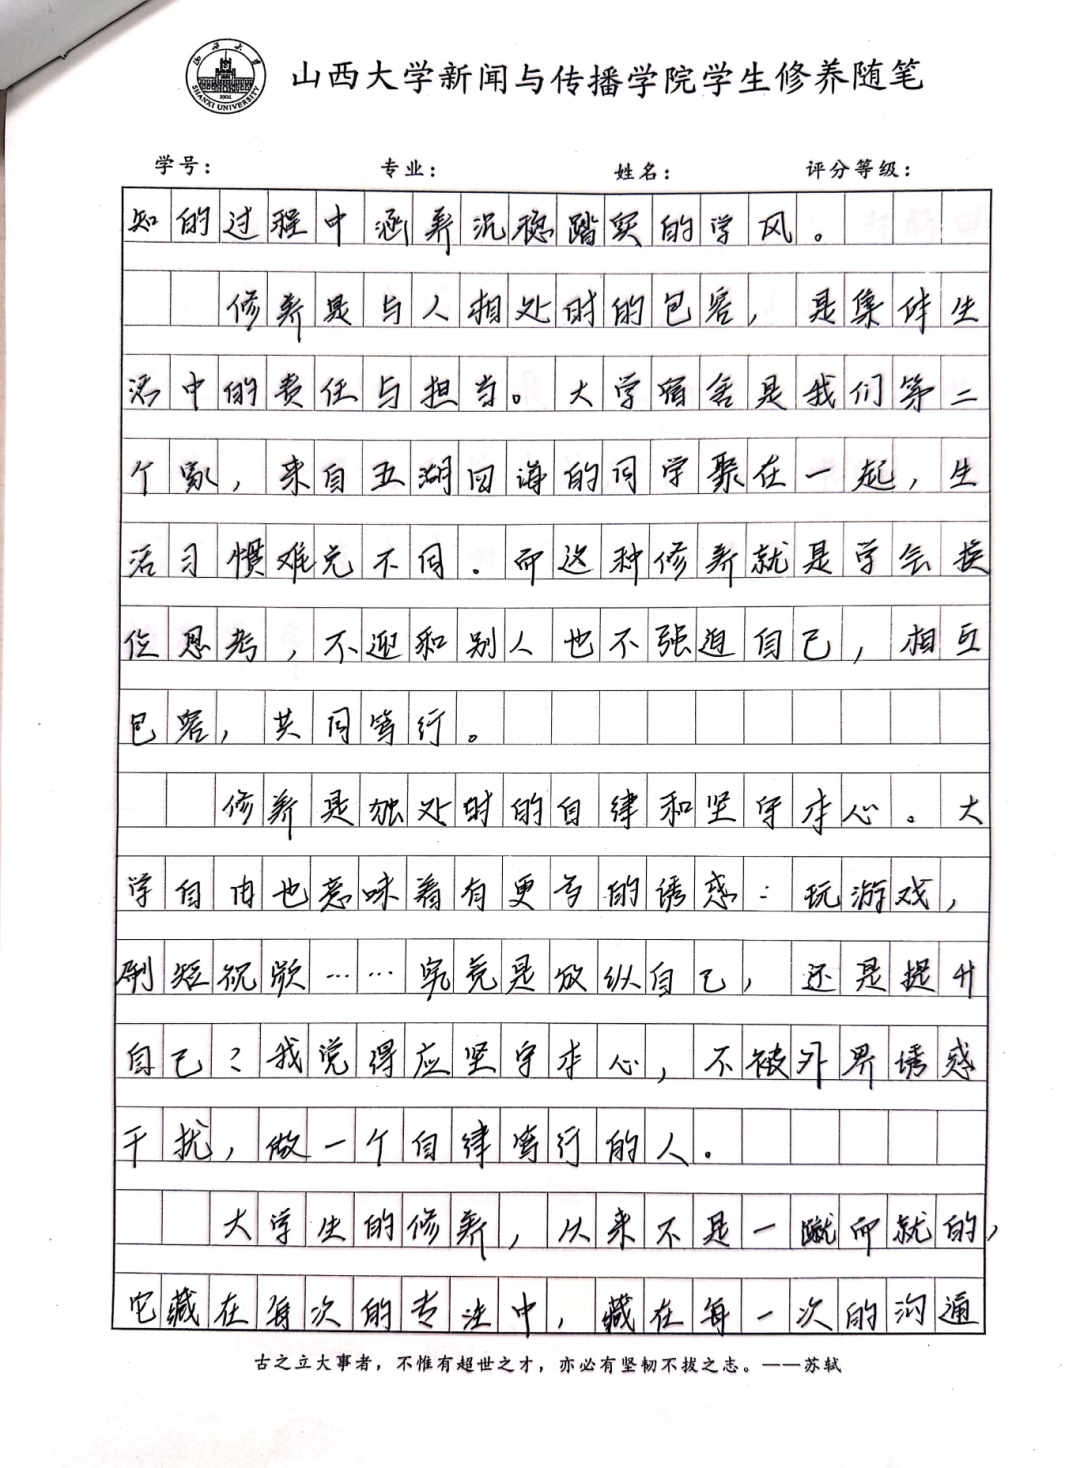 山西大学
SHANXI UNIVERSITY
1902
山西大学新闻与传播学院学生修养随笔
学号： 专业： 姓名： 评分等级：
知的过程中涵养沉稳踏实的学风。
修养是与人相处时的包容，是集体生
活中的责任与担当。大学宿舍是我们第二
个家，来自五湖四海的同学聚在一起，生
活习惯难免不同.而这种修养就是学会换
位思考，不迎和别人也不强迫自己，相互
包容，共同笃行。
修养是独处时的自律和坚守本心。大
学自由也意味着有更多的诱惑：玩游戏，
刷短视频……究竟是放纵自己，还是提升
自己？我觉得应坚守本心，不被外界诱惑
干扰，做一个自律笃行的人.
大学生的修养，从来不是一蹴而就的，
它藏在每次的专注中，藏在每一次的沟通
古之立大事者，不惟有超世之才，亦必有坚韧不拔之志。——苏轼